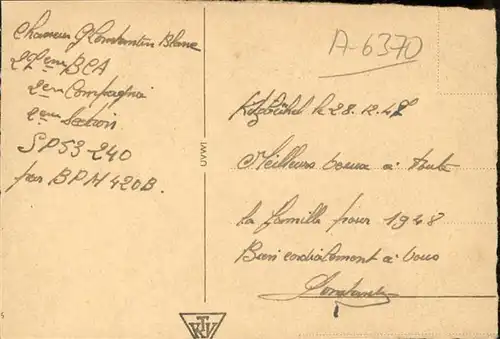 Chasseur G Constantin Blanc
27eme BCA
2em Compagnie
2em Section
SP53 240
par BPM 420B.
A-6370
Kitzbühel le 28.12.47
Meilleurs voeux à toute
la famille pour 1948
Bien cordialement à vous
Constantin
UVW1